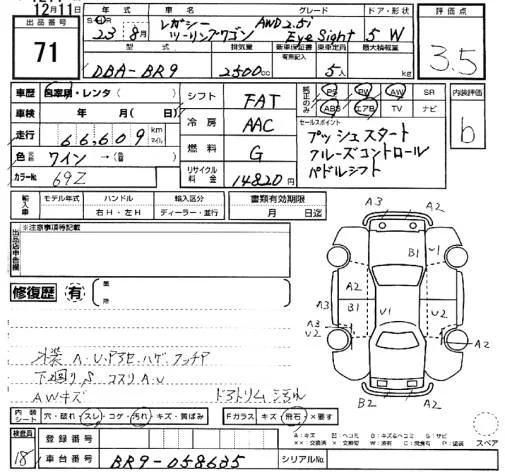 12月11日
出品番号
71
年式 車名 グレード ドア・形状
S・H 23年 8月 レガシー ツーリングワゴン AWD 2.5i Eye Sight 5 W
型式 排気量 新車保証書 乗車定員 最大積載量
有無記入
DBA-BR9 2500cc 5人 kg
評価点
3.5
車歴 自家用・レンタ( )
車検 年 月(日)
走行 66,609 km マイル
色 ワイン →( )
カラーNo. 69Z
シフト FAT
冷房 AAC
燃料 G
リサイクル料金 14820円
純正のみ PS PW AW SR
ABS エアB TV ナビ
セールスポイント
プッシュスタート
クルーズコントロール
パドルシフト
内装評価
b
輸入車 モデル年式 ハンドル 輸入区分
右H・左H ディーラー・並行
書類有効期限
月 日迄
出品店申告欄
※注意事項等記載
修復歴 有
箇所
外装 A.U.P3セ.ハゲ.タッチP
下廻りS コスリA.U
AWキズ ドアトリム汚れ
内装シート 穴・破れ・スレ・コゲ・汚れ・キズ・黄ばみ Fガラス キズ・飛石・×要す
検査員
18
登録番号
車台番号 BR9-058635 シリアルNo.
A3 A2
B1 U1
A3 A2
B1 V1 U2
A3
U2 A2
B2 A2
A:キズ U:ヘコミ B:キズ&ヘコミ S:サビ
XX:交換済 X:交換要 W:波有 C:腐食有 P:塗装
スペア